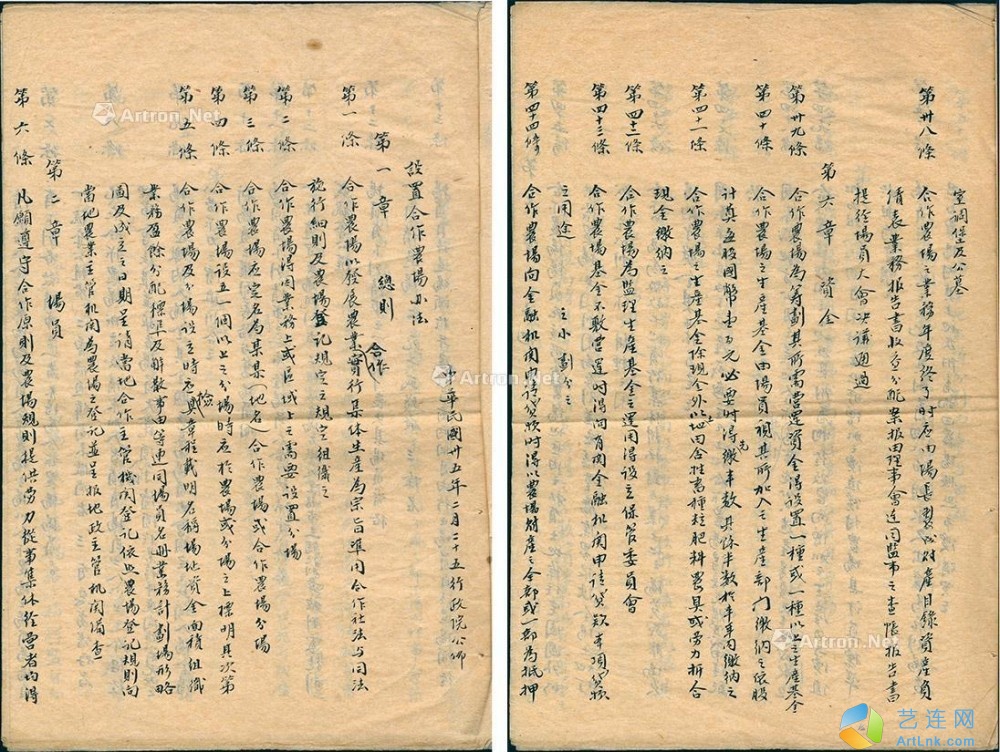 設置合作農場办法
中華民國卅五年二月二十五行政院公佈
第一章 總則
第一條 合作農場以發展農業實行集体生産為宗旨準用合作社法与同法
施行細則及農場登記規定之規定組織之
合作
第二條 合作農場得因業務上或區域上之需要設置分場
第三條 合作農場應定名為某某(地名)合作農場或合作農場分場
第四條 合作農場設立一個以上之分場時应於農場或分場之上標明其次第
第五條 合作農場及分場設立時应具章程載明名稱場地資金面積組織
檢
業務盈餘分配標準及解散事由等連同場員名册業務計劃場形略
圖及成立之日期呈請當地合作主管機関登記依照農場登記規則向
當地農業主管机関為農場之登記並呈报地政主管机関備查
第二章 場員
第六條 凡願遵守合作原則及農場規則提供勞力從事集体經营者均得
第卅八條 合作農場之業務年度終了时应由場長製成財產目錄資產負
債表業務报告書收益分配案报由理事會連同監事之查賬报告書
提經場員大會决議通過
第六章 資金
第卅九條 合作農場為籌劃其所需营運資金得設置一種或一種以上之生產基金
第四十條 合作農場之生產基金由場員視其所加入之生產部门缴纳之依股
先
第四十一條 合作農場之生產基金除現金外以土地田舍牲畜種籽肥料農具或勞力折合
現金缴纳之
第四十二條 合作農場為監理生產基金之運用得設立保管委員會
第四十三條 合作農場基金不敷营運时得向有関金融机関申請貸款本項貸款
之用途
第四十四條 合作農場向金融机関申請貸款时得以農場財產之全部或一部為抵押
Artron.Net
艺连网
ArtLnk.com